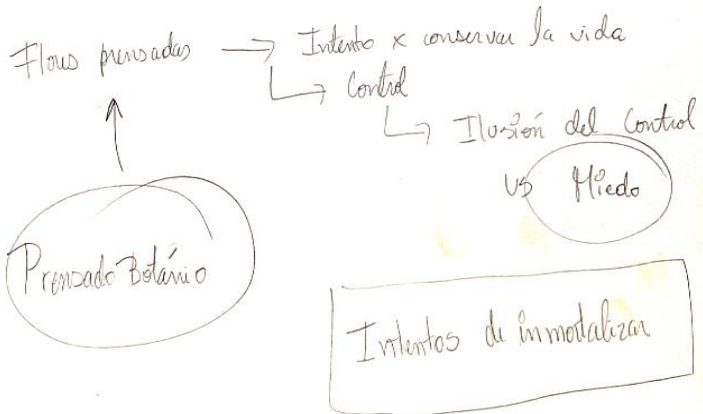 Flores prensadas → Intento x conservar la vida
↳ Control
↳ Ilusión del Control
vs Miedo
Prensado Botánio
Intentos de inmortalizar